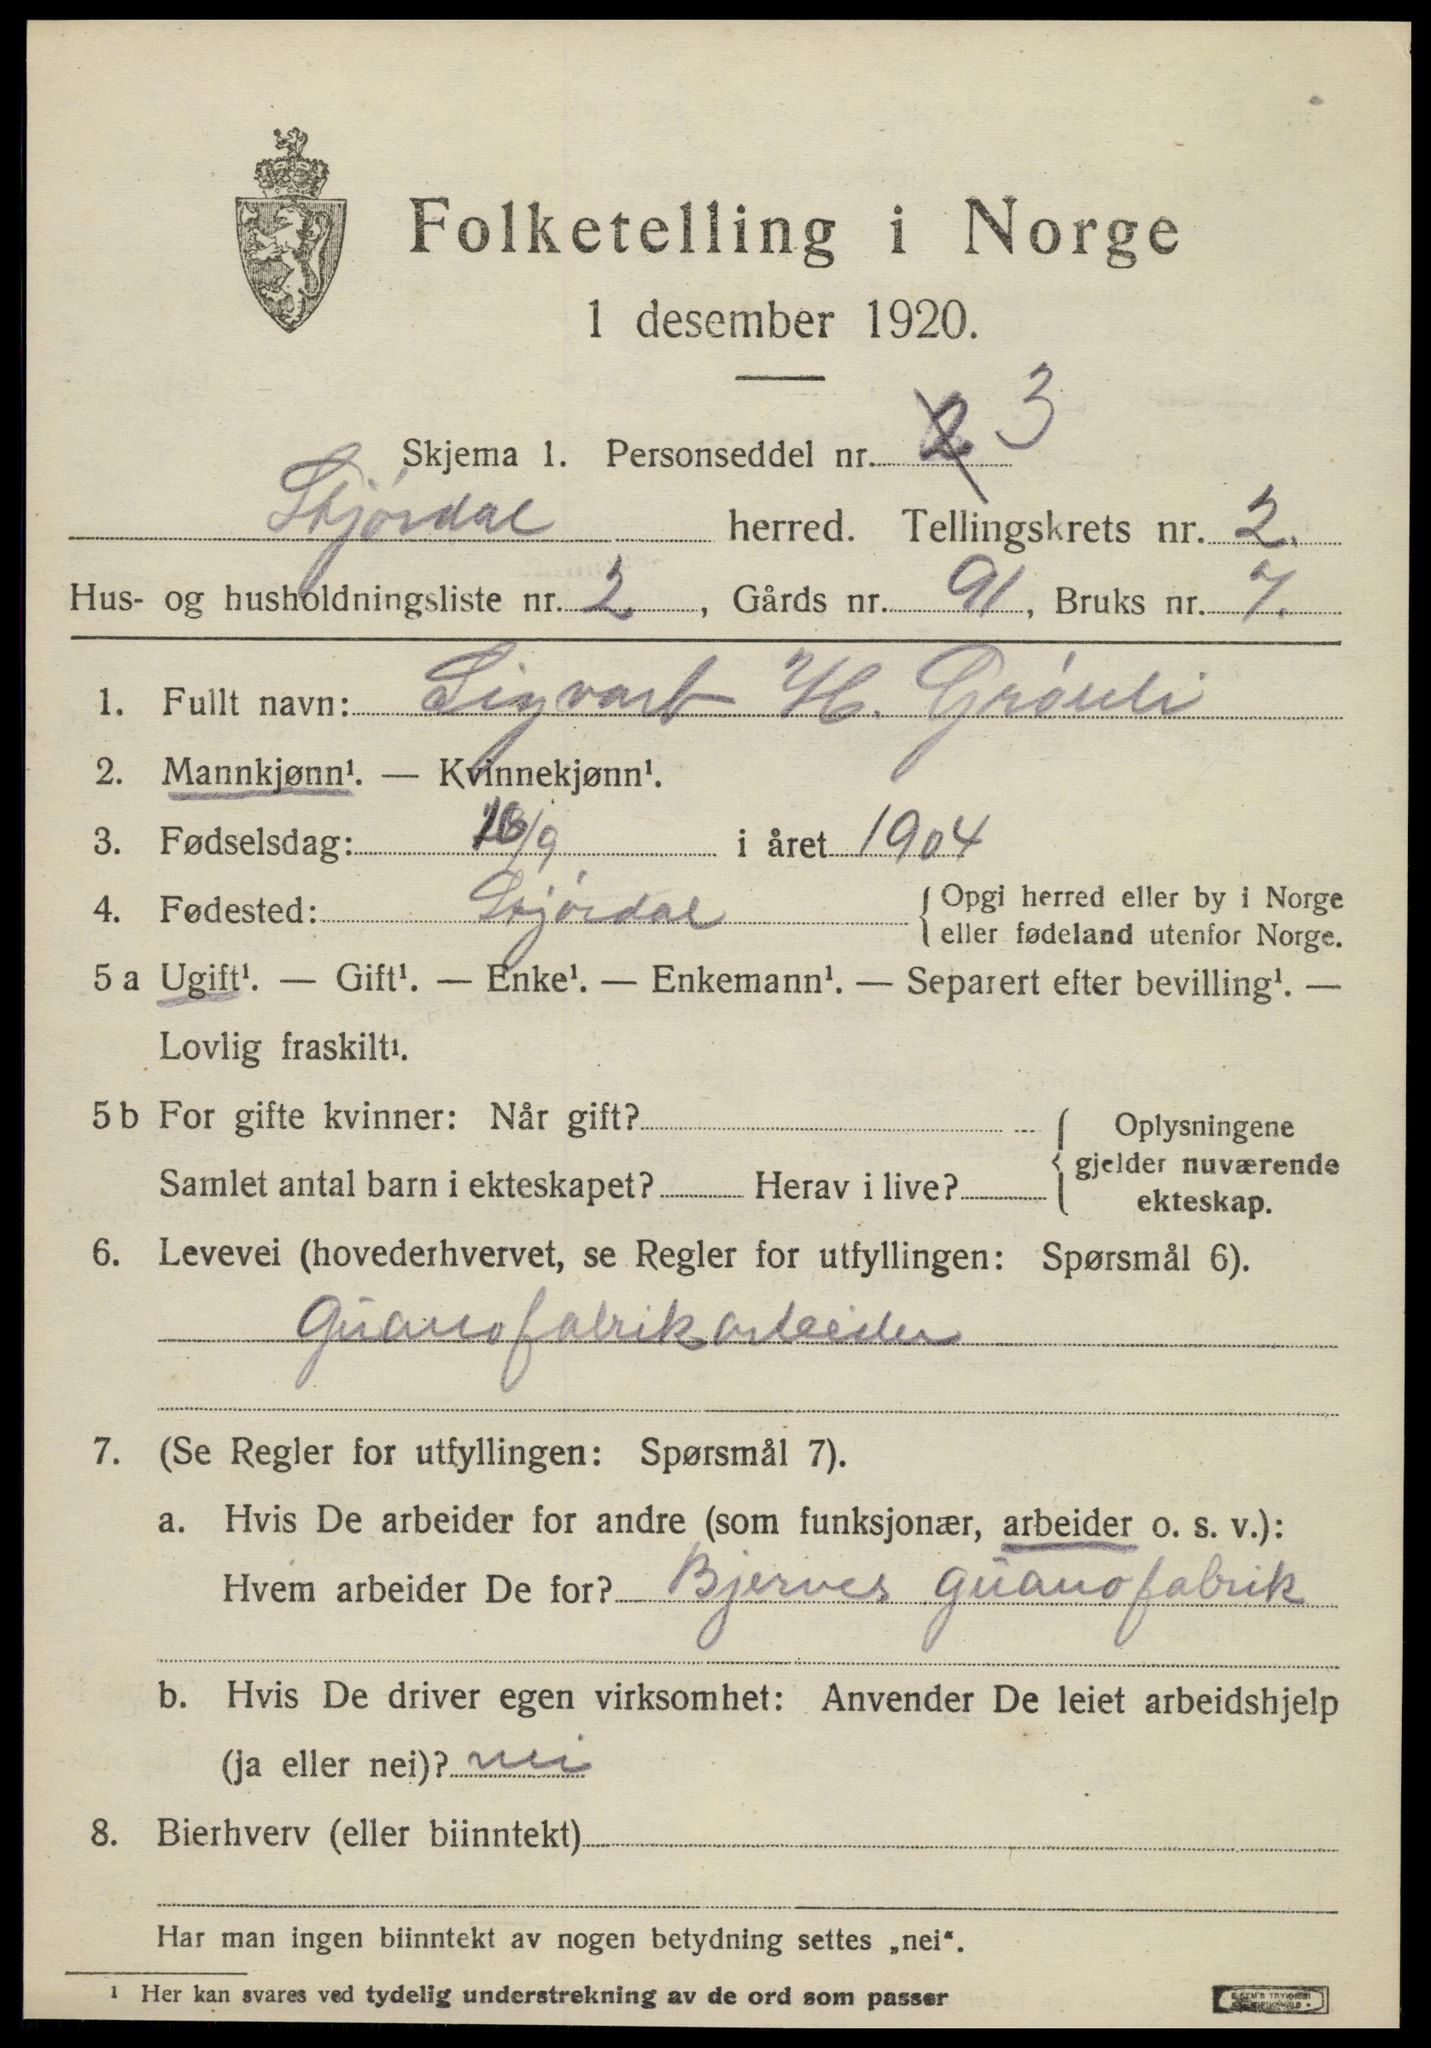 Folketelling i Norge
1 desember 1920.
Skjema 1. Personseddel nr. 2 3
Stjørdal herred. Tellingskrets nr. 2.
Hus- og husholdningsliste nr. 2, Gårds nr. 91, Bruks nr. 7.
1. Fullt navn: Sigvart H.
2. Mannkjønn¹. — Kvinnekjønn¹.
3. Fødselsdag: /9 i året 1904
4. Fødested: Stjørdal { Opgi herred eller by i Norge
eller fødeland utenfor Norge.
5 a Ugift¹. — Gift¹. — Enke¹. — Enkemann¹. — Separert efter bevilling¹. —
Lovlig fraskilt¹.
5 b For gifte kvinner: Når gift? { Oplysningene
gjelder nuværende
Samlet antal barn i ekteskapet? Herav i live?
ekteskap.
6. Levevei (hovederhvervet, se Regler for utfyllingen: Spørsmål 6).
Guanofabrikarbeider
7. (Se Regler for utfyllingen: Spørsmål 7).
a. Hvis De arbeider for andre (som funksjonær, arbeider o. s. v.):
Hvem arbeider De for? Bjerves guanofabrik
b. Hvis De driver egen virksomhet: Anvender De leiet arbeidshjelp
(ja eller nei)? nei
8. Bierhverv (eller biinntekt)
Har man ingen biinntekt av nogen betydning settes „nei“.
¹ Her kan svares ved tydelig understrekning av de ord som passer